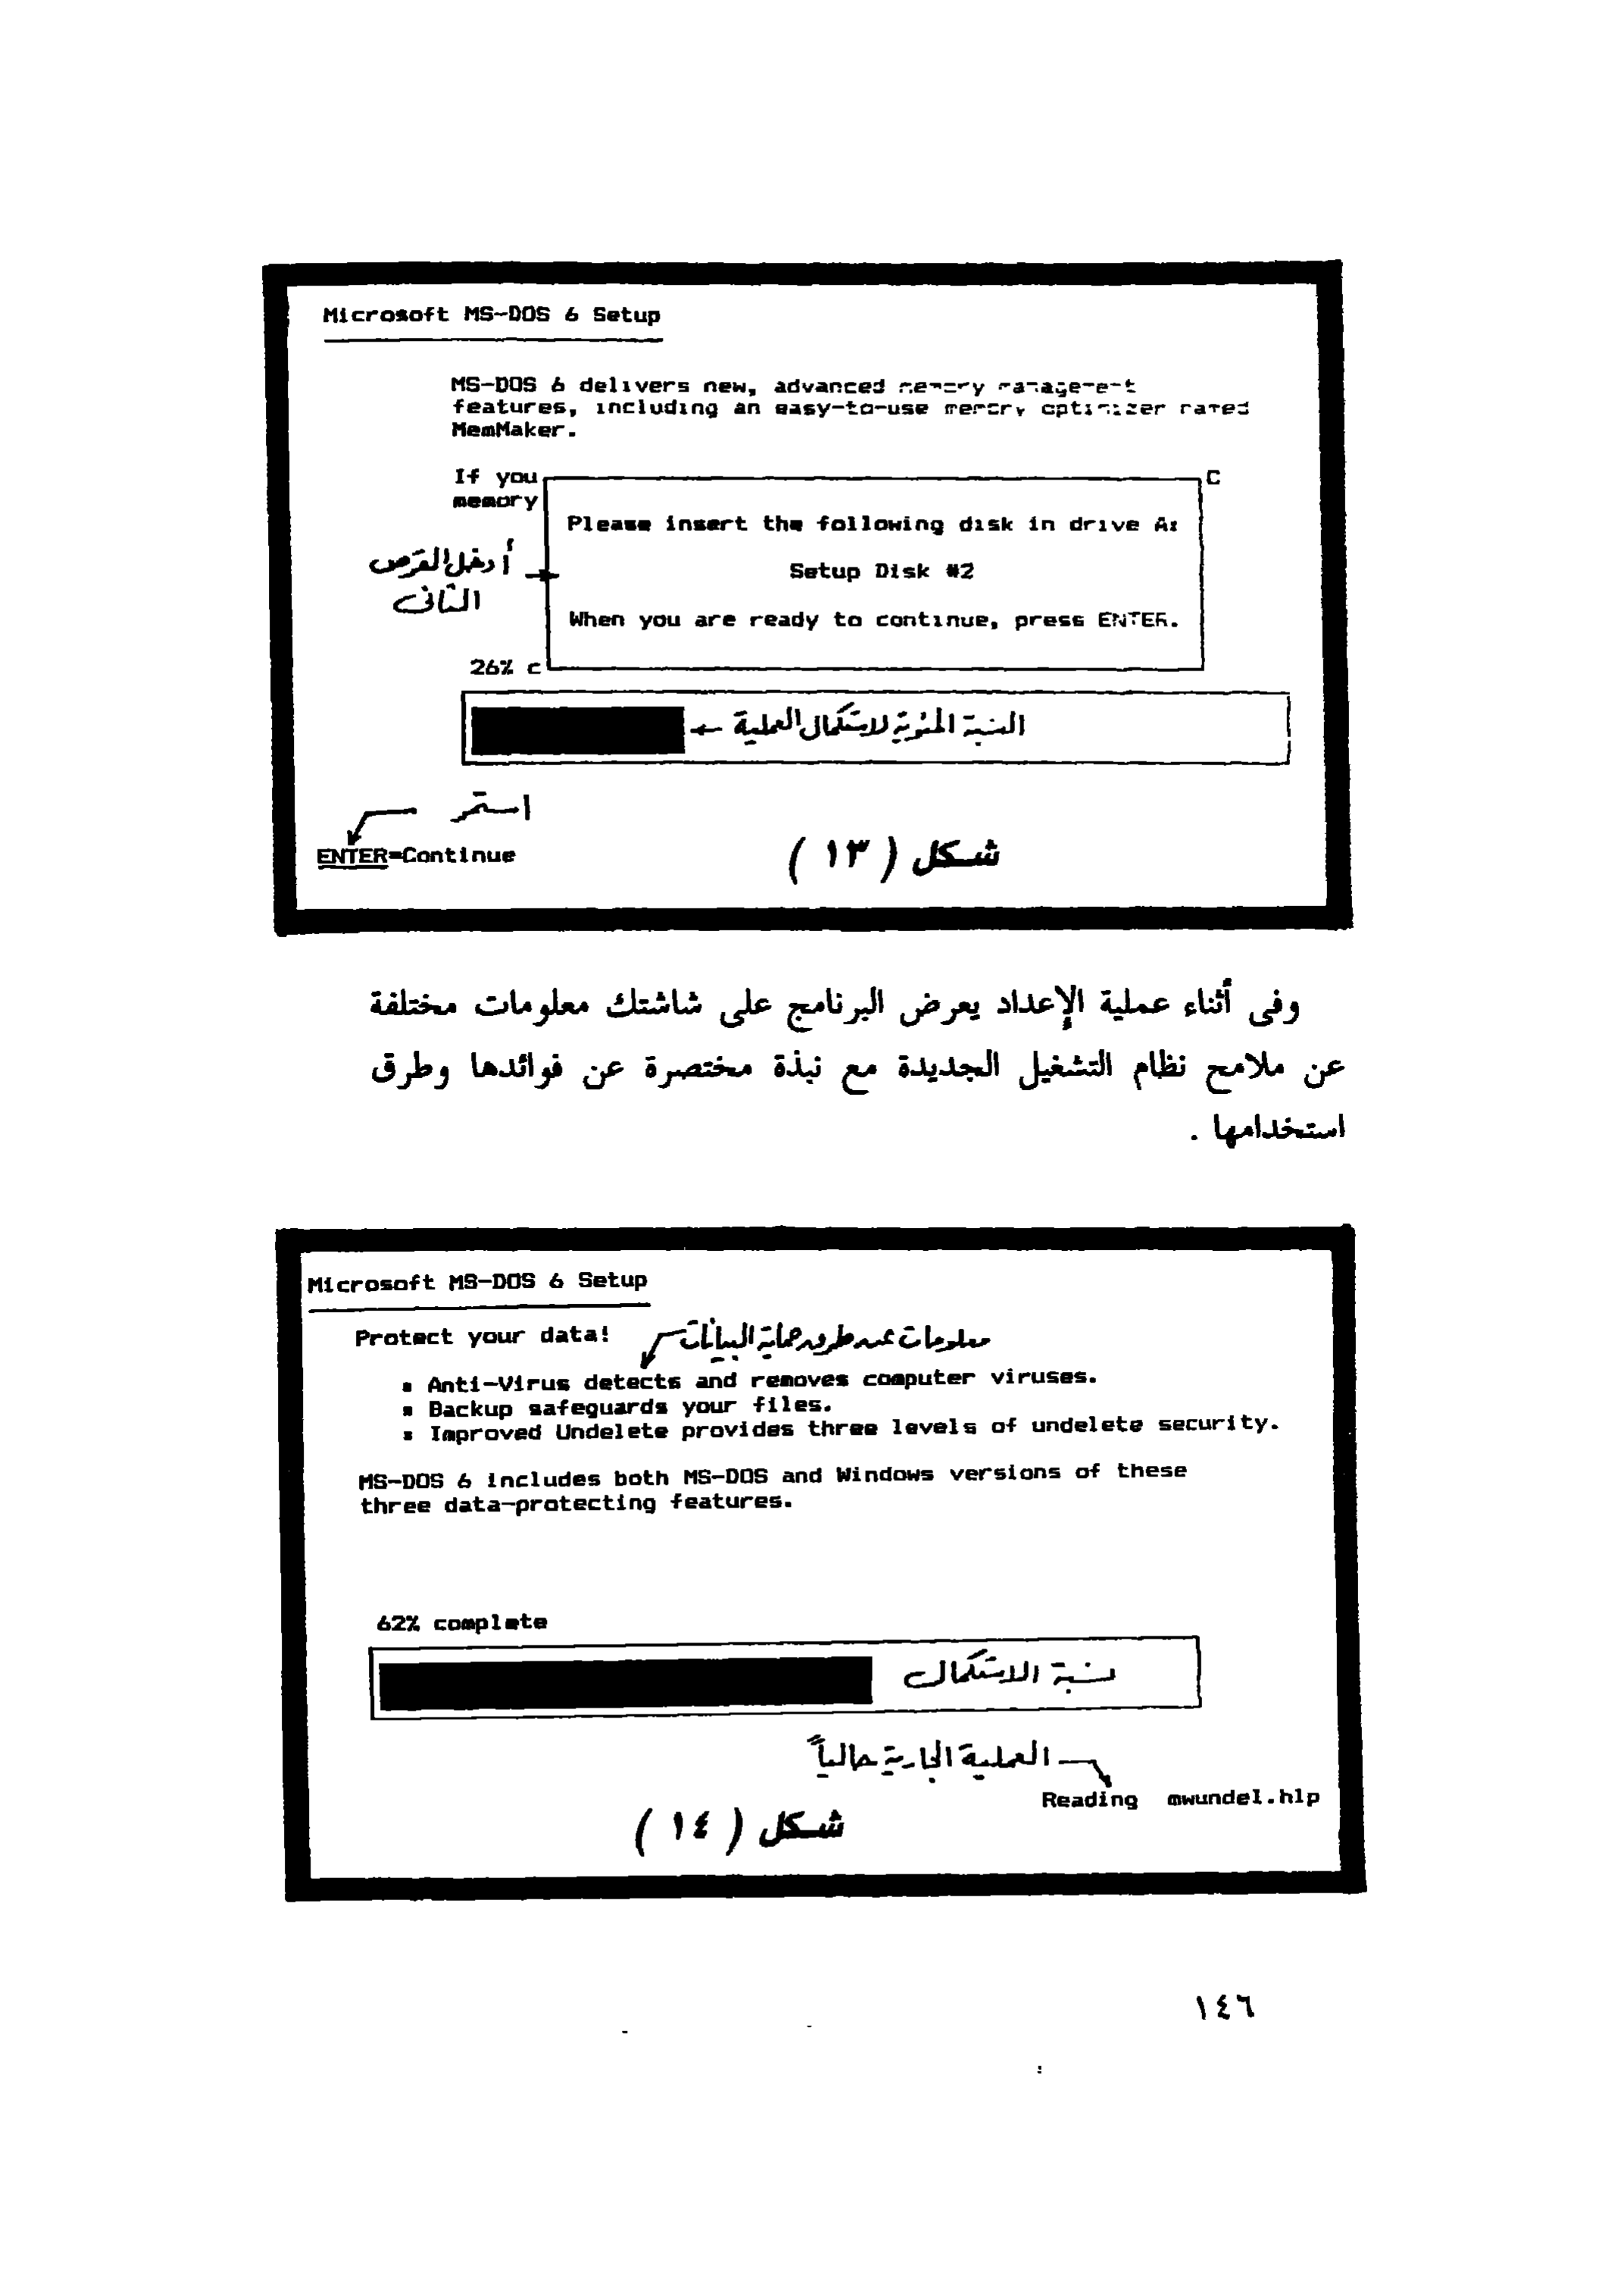 Microsoft MS-DOS 6 Setup
MS-DOS 6 delivers new, advanced memory management
features, including an easy-to-use memory optimizer named
MemMaker.
If you C
memory
Please insert the following disk in drive A:
أدخل القرص
Setup Disk #2
الثانى
When you are ready to continue, press ENTER.
26% c
النسبة المئوية لاستكمال العملية
استمر
ENTER=Continue
شكل ( ١٣ )
وفى أثناء عملية الإعداد يعرض البرنامج على شاشتك معلومات مختلفة
عن ملامح نظام التشغيل الجديدة مع نبذة مختصرة عن فوائدها وطرق
استخدامها .
Microsoft MS-DOS 6 Setup
Protect your data!
معلومات عن طرق حماية البيانات
▪ Anti-Virus detects and removes computer viruses.
▪ Backup safeguards your files.
▪ Improved Undelete provides three levels of undelete security.
MS-DOS 6 includes both MS-DOS and Windows versions of these
three data-protecting features.
62% complete
نسبة الاستكمال
العملية الجارية حالياً
Reading mwundel.hlp
شكل ( ١٤ )
١٤٦